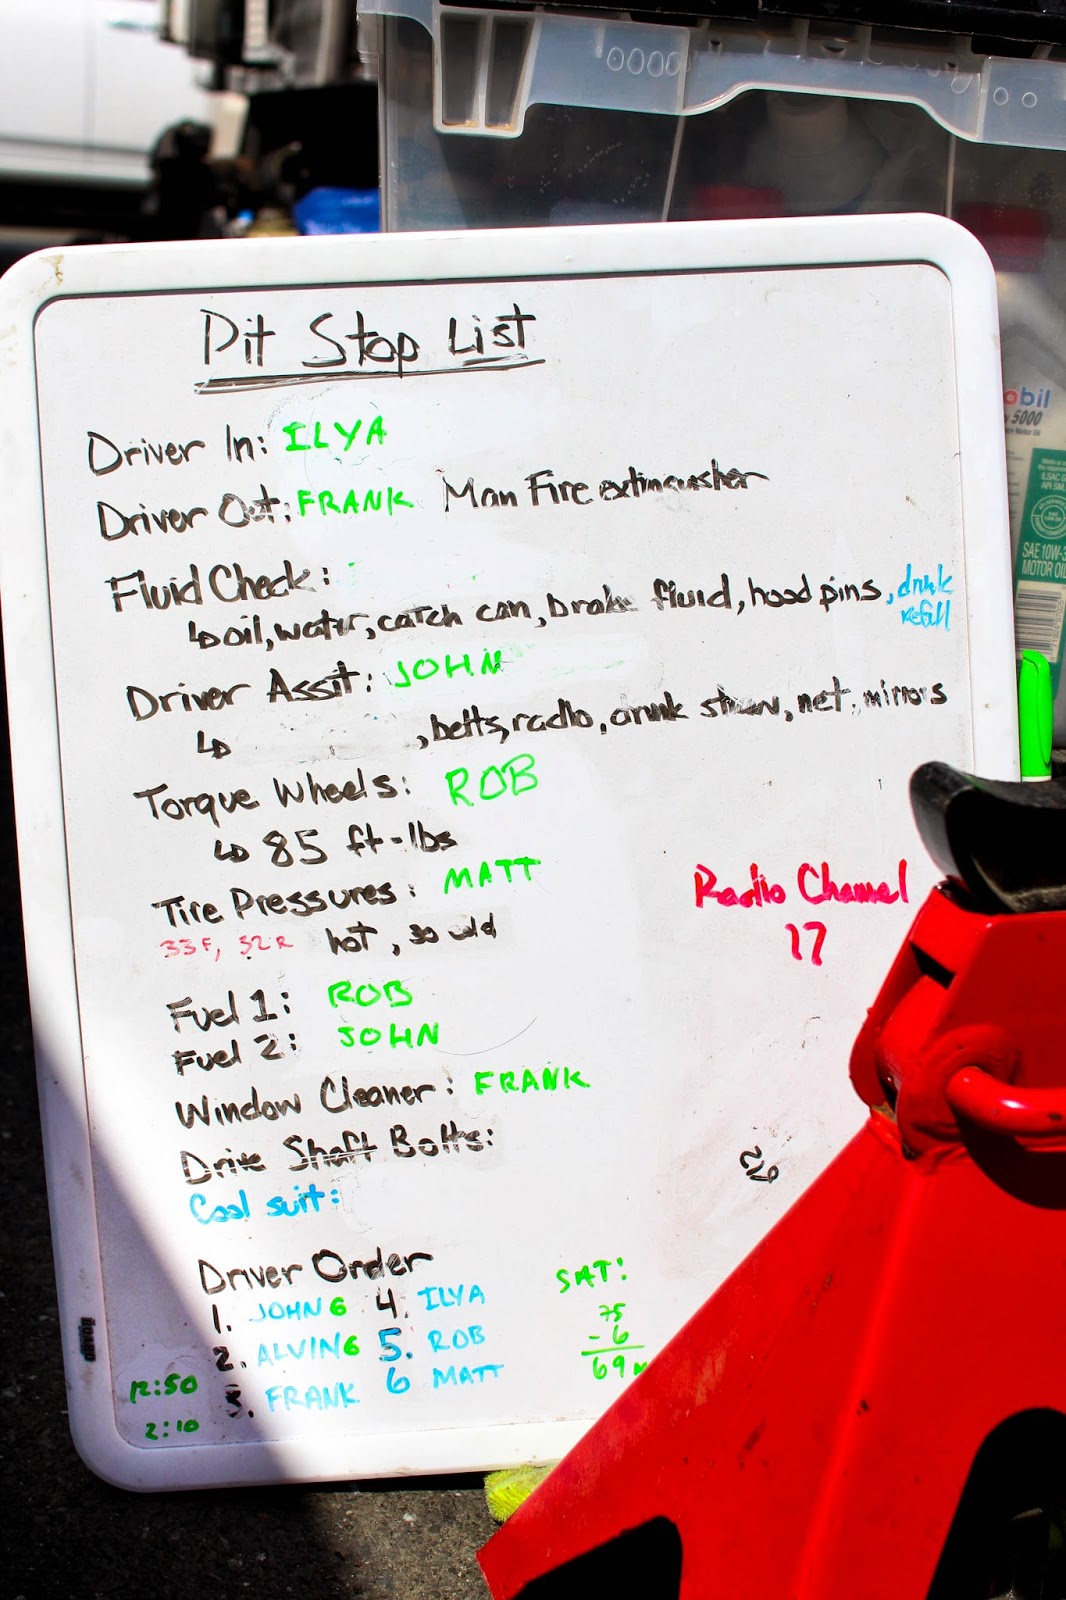 Pit Stop List
Driver In: ILYA
Driver Out: FRANK Man Fire extinguisher
Fluid Check:
↳ oil, water, catch can, brake fluid, hood pins, drink refill
Driver Assit: JOHN
↳ , belts, radio, drink straw, net, mirrors
Torque Wheels: ROB
↳ 85 ft-lbs
Tire Pressures: MATT
33F, 32R hot, 30 cold
Radio Channel
17
Fuel 1: ROB
Fuel 2: JOHN
Window Cleaner: FRANK
Drive Shaft Bolts:
Cool suit:
Driver Order
1. JOHN 6 4. ILYA
2. ALVIN 6 5. ROB
3. FRANK 6 MATT
12:50
2:10
SAT:
75
- 6
69
BOARD
obil
5000
SAE 10W-3
MOTOR OIL